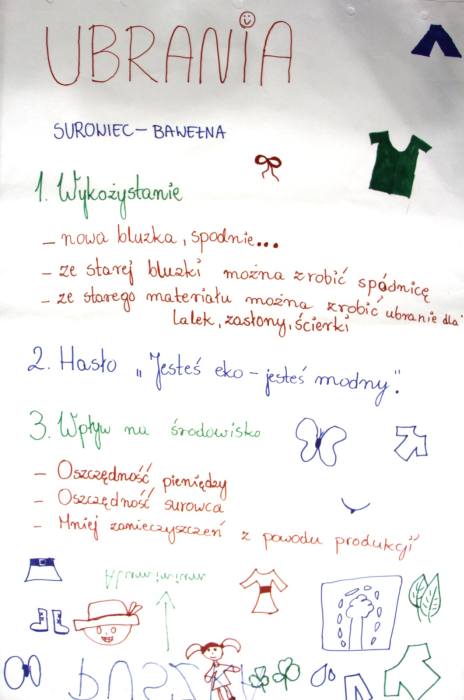 UBRANIA
SUROWIEC – BAWEŁNA
1. Wykożystanie
– nowa bluzka, spodnie...
– ze starej bluzki można zrobić spódnicę
– ze starego materiału można zrobić ubranie dla
lalek, zasłony, ścierki
2. Hasło „Jesteś eko – jesteś modny”.
3. Wpływ na środowisko
– Oszczędność pieniędzy
– Oszczędność surowca
– Mniej zanieczyszczeń z powodu produkcji
Aluminium